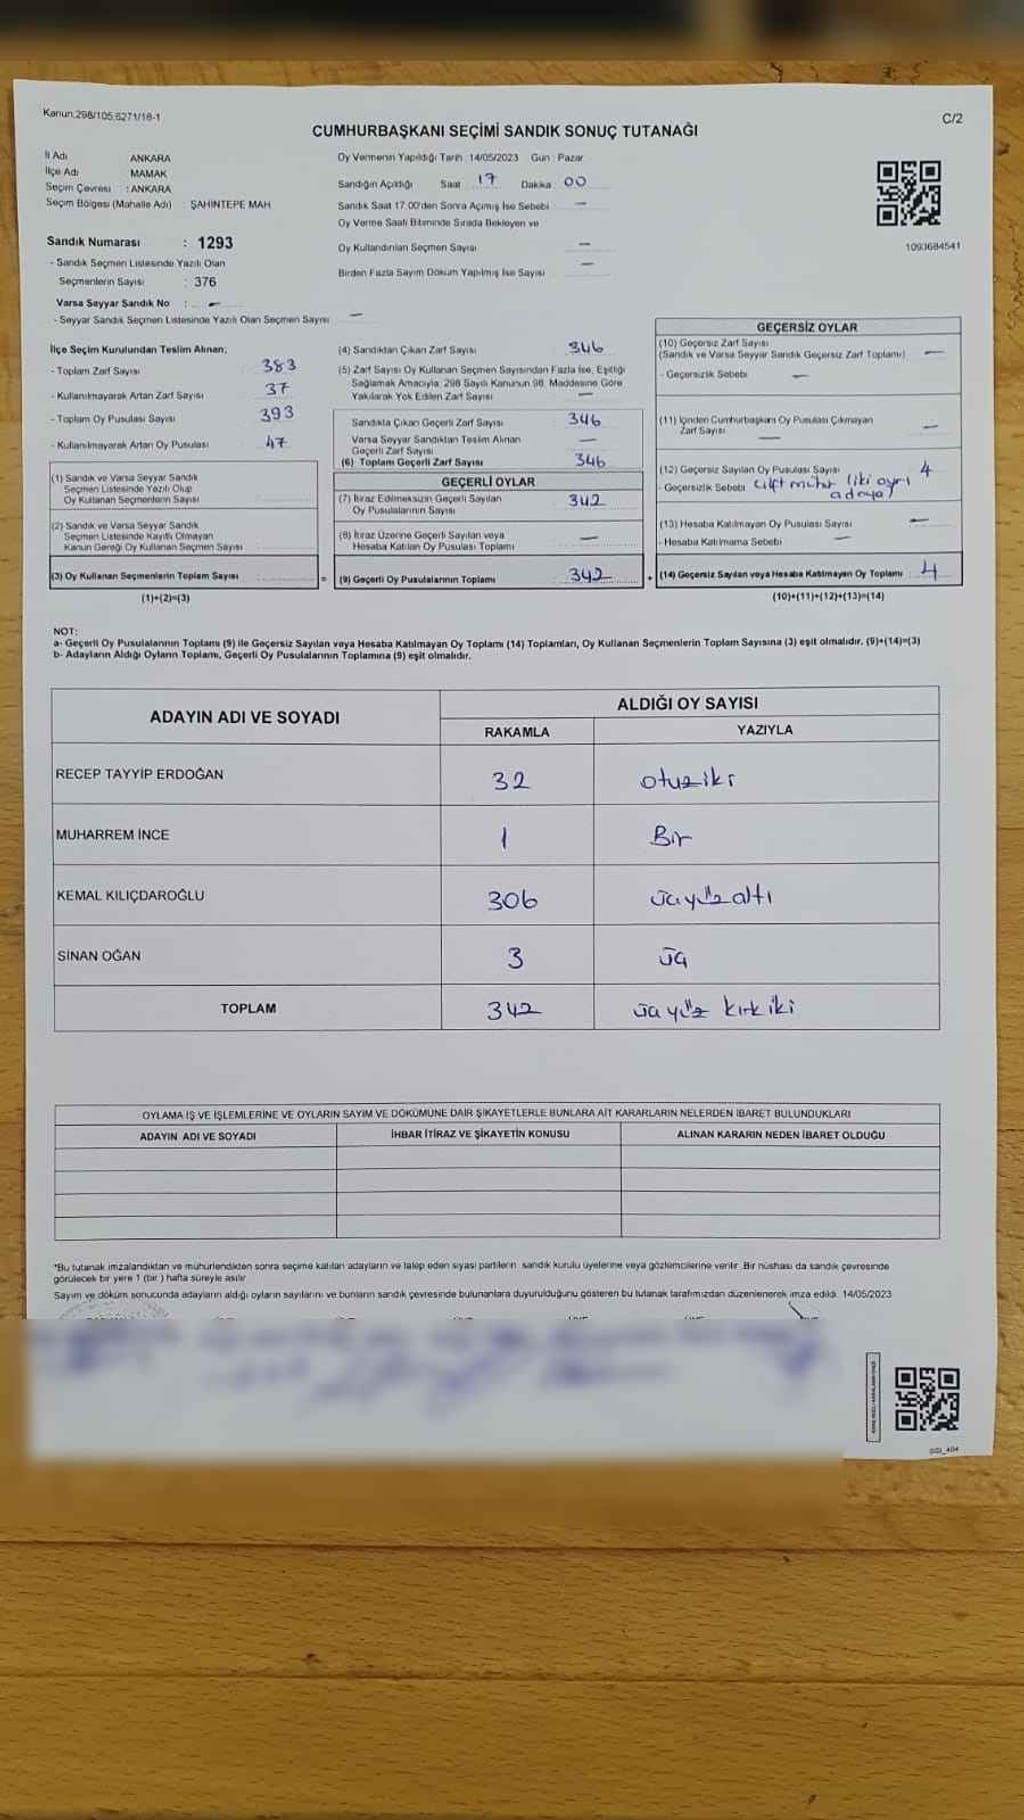 Kanun:298/105,6271/18-1
C/2
CUMHURBAŞKANI SEÇİMİ SANDIK SONUÇ TUTANAĞI
İl Adı ANKARA
İlçe Adı MAMAK
Seçim Çevresi : ANKARA
Seçim Bölgesi (Mahalle Adı) : ŞAHİNTEPE MAH
Sandık Numarası : 1293
- Sandık Seçmen Listesinde Yazılı Olan
Seçmenlerin Sayısı : 376
Varsa Seyyar Sandık No : -
- Seyyar Sandık Seçmen Listesinde Yazılı Olan Seçmen Sayısı -
Oy Vermenin Yapıldığı Tarih : 14/05/2023 Gün : Pazar
Sandığın Açıldığı Saat 17 Dakika 00
Sandık Saat 17.00'den Sonra Açılmış İse Sebebi -
Oy Verme Saati Bitiminde Sırada Bekleyen ve
Oy Kullandırılan Seçmen Sayısı -
Birden Fazla Sayım Döküm Yapılmış İse Sayısı -
1093684541
İlçe Seçim Kurulundan Teslim Alınan;
- Toplam Zarf Sayısı 383
- Kullanılmayarak Artan Zarf Sayısı 37
- Toplam Oy Pusulası Sayısı 393
- Kullanılmayarak Artan Oy Pusulası 47
(1) Sandık ve Varsa Seyyar Sandık
Seçmen Listesinde Yazılı Olup
Oy Kullanan Seçmenlerin Sayısı
(2) Sandık ve Varsa Seyyar Sandık
Seçmen Listesinde Kayıtlı Olmayan
Kanun Gereği Oy Kullanan Seçmen Sayısı
(3) Oy Kullanan Seçmenlerin Toplam Sayısı =
(1)+(2)=(3)
(4) Sandıktan Çıkan Zarf Sayısı 346
(5) Zarf Sayısı Oy Kullanan Seçmen Sayısından Fazla İse, Eşitliği
Sağlamak Amacıyla, 298 Sayılı Kanunun 98. Maddesine Göre
Yakılarak Yok Edilen Zarf Sayısı -
Sandıkta Çıkan Geçerli Zarf Sayısı 346
Varsa Seyyar Sandıktan Teslim Alınan
Geçerli Zarf Sayısı -
(6) Toplam Geçerli Zarf Sayısı 346
GEÇERLİ OYLAR
(7) İtiraz Edilmeksizin Geçerli Sayılan
Oy Pusulalarının Sayısı 342
(8) İtiraz Üzerine Geçerli Sayılan veya
Hesaba Katılan Oy Pusulası Toplamı -
(9) Geçerli Oy Pusulalarının Toplamı 342 +
GEÇERSİZ OYLAR
(10) Geçersiz Zarf Sayısı
(Sandık ve Varsa Seyyar Sandık Geçersiz Zarf Toplamı) -
- Geçersizlik Sebebi -
(11) İçinden Cumhurbaşkanı Oy Pusulası Çıkmayan
Zarf Sayısı -
(12) Geçersiz Sayılan Oy Pusulası Sayısı 4
- Geçersizlik Sebebi Çift mühür (iki ayrı
adaya)
(13) Hesaba Katılmayan Oy Pusulası Sayısı -
- Hesaba Katılmama Sebebi -
(14) Geçersiz Sayılan veya Hesaba Katılmayan Oy Toplamı 4
(10)+(11)+(12)+(13)=(14)
NOT:
a- Geçerli Oy Pusulalarının Toplamı (9) ile Geçersiz Sayılan veya Hesaba Katılmayan Oy Toplamı (14) Toplamları, Oy Kullanan Seçmenlerin Toplam Sayısına (3) eşit olmalıdır. (9)+(14)=(3)
b- Adayların Aldığı Oyların Toplamı, Geçerli Oy Pusulalarının Toplamına (9) eşit olmalıdır.
ADAYIN ADI VE SOYADI ALDIĞI OY SAYISI
RAKAMLA YAZIYLA
RECEP TAYYİP ERDOĞAN 32 otuziki
MUHARREM İNCE 1 Bir
KEMAL KILIÇDAROĞLU 306 üçyüzaltı
SİNAN OĞAN 3 üç
TOPLAM 342 üçyüz kırkiki
OYLAMA İŞ VE İŞLEMLERİNE VE OYLARIN SAYIM VE DÖKÜMÜNE DAİR ŞİKAYETLERLE BUNLARA AİT KARARLARIN NELERDEN İBARET BULUNDUKLARI
ADAYIN ADI VE SOYADI İHBAR İTİRAZ VE ŞİKAYETİN KONUSU ALINAN KARARIN NEDEN İBARET OLDUĞU
*Bu tutanak imzalandıktan ve mühürlendikten sonra seçime katılan adayların ve talep eden siyasi partilerin sandık kurulu üyelerine veya gözlemcilerine verilir. Bir nüshası da sandık çevresinde
görülecek bir yere 1 (bir) hafta süreyle asılır.
Sayım ve döküm sonucunda adayların aldığı oyların sayılarını ve bunların sandık çevresinde bulunanlara duyurulduğunu gösteren bu tutanak tarafımızdan düzenlenerek imza edildi. 14/05/2023